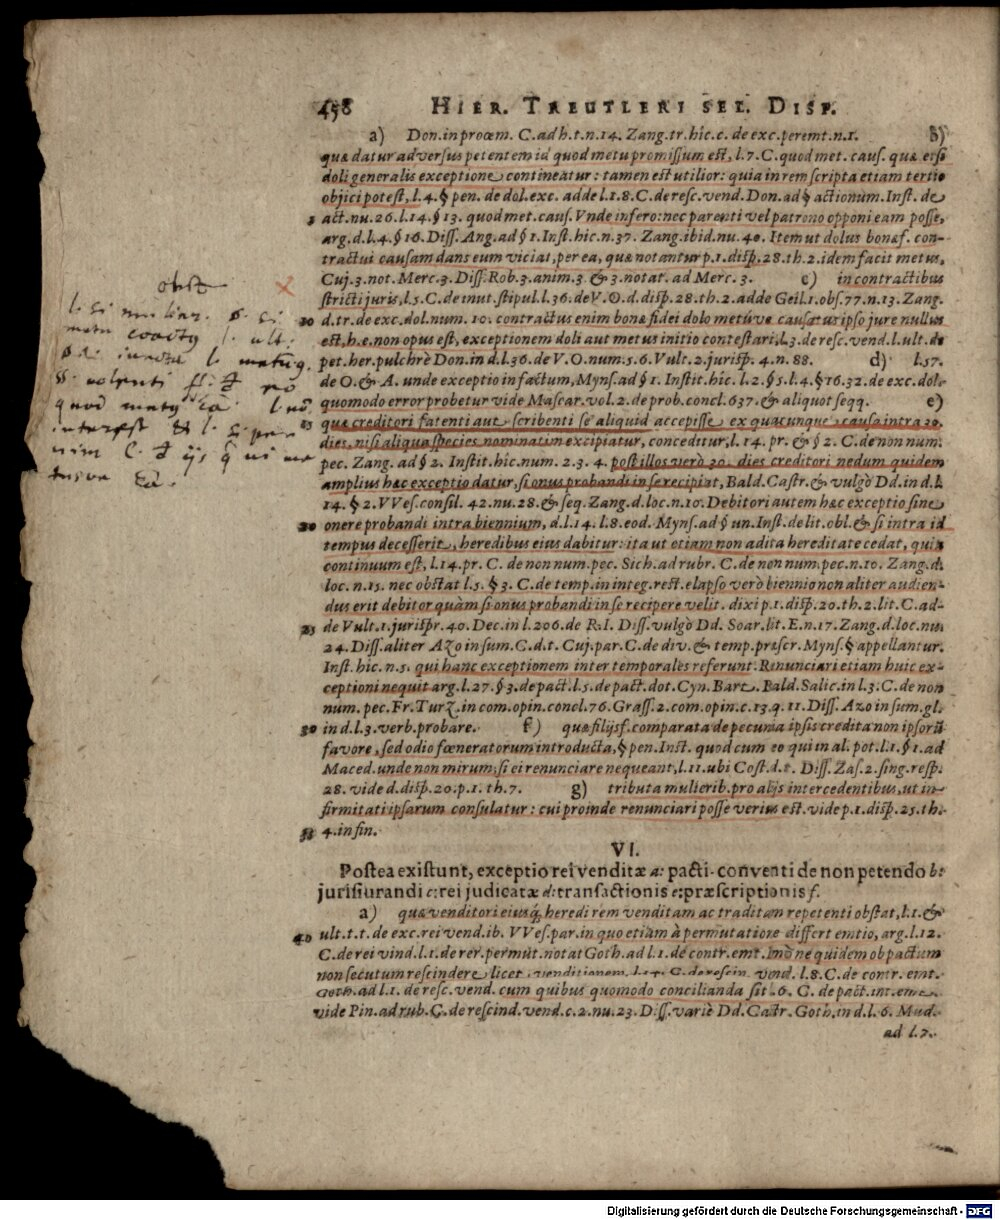 458 HIER. TREUTLERI SEL. DISP.
a) Don. in proœm. C. ad h. t. n. 14. Zang. tr. hîc. c. de exc. peremt. n. 1. b)
quæ datur adversus petentem id quod metu promissum est, l. 7. C. quod met. caus. quæ etsi
doli generalis exceptione contineatur: tamen est utilior: quia in rem scripta etiam tertio
objici potest, l. 4. § pen. de dol. exc. adde l. 1. 8. C. de resc. vend. Don. ad § actionum. Inst. de
5 act. nu. 26. l. 14. § 13. quod met. caus. Vnde infero: nec parenti vel patrono opponi eam posse,
arg. d. l. 4. § 16. Diss. Ang. ad § 1. Inst. hîc. n. 37. Zang. ibid. nu. 40. Item ut dolus bonæ f. con-
tractui causam dans eum viciat, per ea, quæ notantur p. 1. disp. 28. th. 2. idem facit metus,
Cuj. 3. not. Merc. 3. Diss. Rob. 3. anim. 3. & 3. notat. ad Merc. 3. c) in contractibus
stricti juris, l. 5. C. de inut. stipul. l. 36. de V. O. d. disp. 28. th. 2. adde Geil. 1. obs. 77. n. 13. Zang.
10 d. tr. de exc. dol. num. 10. contractus enim bonæ fidei dolo metúve causatus ipso jure nullus
est, h. e. non opus est, exceptionem doli aut metus initio contestari, l. 3. de resc. vend. l. ult. de
pet. her. pulchrè Don. in d. l. 36. de V. O. num. 5. 6. Vult. 2. jurisp. 4. n. 88. d) l. 57.
de O. & A. unde exceptio in factum, Myns. ad § 1. Instit. hîc. l. 2. § 5. l. 4. § 16. 32. de exc. dol.
quomodo error probetur vide Mascar. vol. 2. de prob. concl. 637. & aliquot seqq. e)
15 quæ creditori fatenti aut scribenti se aliquid accepisse ex quacunque causa intra 30.
dies, nisi aliqua species nominatim excipiatur, conceditur, l. 14. pr. & § 2. C. de non num.
pec. Zang. ad § 2. Instit. hîc. num. 2. 3. 4. post illos verò 30. dies creditori nedum quidem
amplius hæc exceptio datur, si onus probandi in se recipiat, Bald. Castr. & vulgò Dd. in d. l.
14. § 2. VVes. consil. 42. nu. 28. & seq. Zang. d. loc. n. 10. Debitori autem hæc exceptio sine
20 onere probandi intra biennium, d. l. 14. l. 8. eod. Myns. ad § un. Inst. de lit. obl. & si intra id
tempus decesserit, heredibus eius dabitur: ita ut etiam non adita hereditate cedat, quia
continuum est, l. 14. pr. C. de non num. pec. Sich. ad rubr. C. de non num. pec. n. 10. Zang. d.
loc. n. 15. nec obstat l. 5. § 3. C. de temp. in integ. rest. elapso verò biennio non aliter audien-
dus erit debitor quàm si onus probandi in se recipere velit. dixi p. 1. disp. 20. th. 2. lit. C. ad-
25 de Vult. 1. jurispr. 40. Dec. in l. 206. de R. I. Diss. vulgò Dd. Soar. lit. E. n. 17. Zang. d. loc. nu.
24. Diss. aliter Azo in sum. C. d. t. Cuj. par. C. de div. & temp. præscr. Myns. § appellantur.
Inst. hîc. n. 5. qui hanc exceptionem inter temporales referunt. Rinunciari etiam huic ex-
ceptioni nequit arg. l. 27. § 3. de pact. l. 5. de pact. dot. Cyn. Bart. Bald. Salic. in l. 3. C. de non
num. pec. Fr. Turz. in com. opin. concl. 76. Grass. 2. com. opin. c. 13. q. 11. Diss. Azo in sum. gl.
30 in d. l. 3. verb. probare. f) quæ filijs f. comparata de pecunia ipsis credita non ipsorū
favore, sed odio fœneratorum introducta, § pen. Inst. quod cum eo qui in al. pot. l. 1. § 1. ad
Maced. unde non mirum, si ei renunciare nequeant, l. 11. ubi Cost. d. t. Diss. Zas. 2. sing. resp.
28. vide d. disp. 20. p. 1. th. 7. g) tributa mulierib. pro alijs intercedentibus, ut in-
firmitati ipsarum consulatur: cui proinde renunciari posse verius est. vide p. 1. disp. 25. th.
35 4. in fin.
VI.
Postea existunt, exceptio rei venditæ a: pacti conventi de non petendo b:
jurisiurandi c: rei judicatæ d: transactionis e: præscriptionis f.
a) quæ venditori eiusq́; heredi rem venditam ac traditam repetenti obstat, l. 1. &
40 ult. t. t. de exc. rei vend. ib. VVes. par. in quo etiam à permutatione differt emtio, arg. l. 12.
C. de rei vind. l. 1. de rer. permut. notat Goth. ad l. 1. de contr. emt. Imò ne quidem ob pactum
non secutum rescindere licet venditionem, l. 14. C. de rescin. vend. l. 8. C. de contr. emt.
Goth. ad l. 1. de resc. vend. cum quibus quomodo concilianda sit l. 6. C. de pact. int. emt.
vide Pin. ad rub. C. de rescind. vend. c. 2. nu. 23. Diss. variè Dd. Castr. Goth. in d. l. 6. Mud.
ad l. 7.